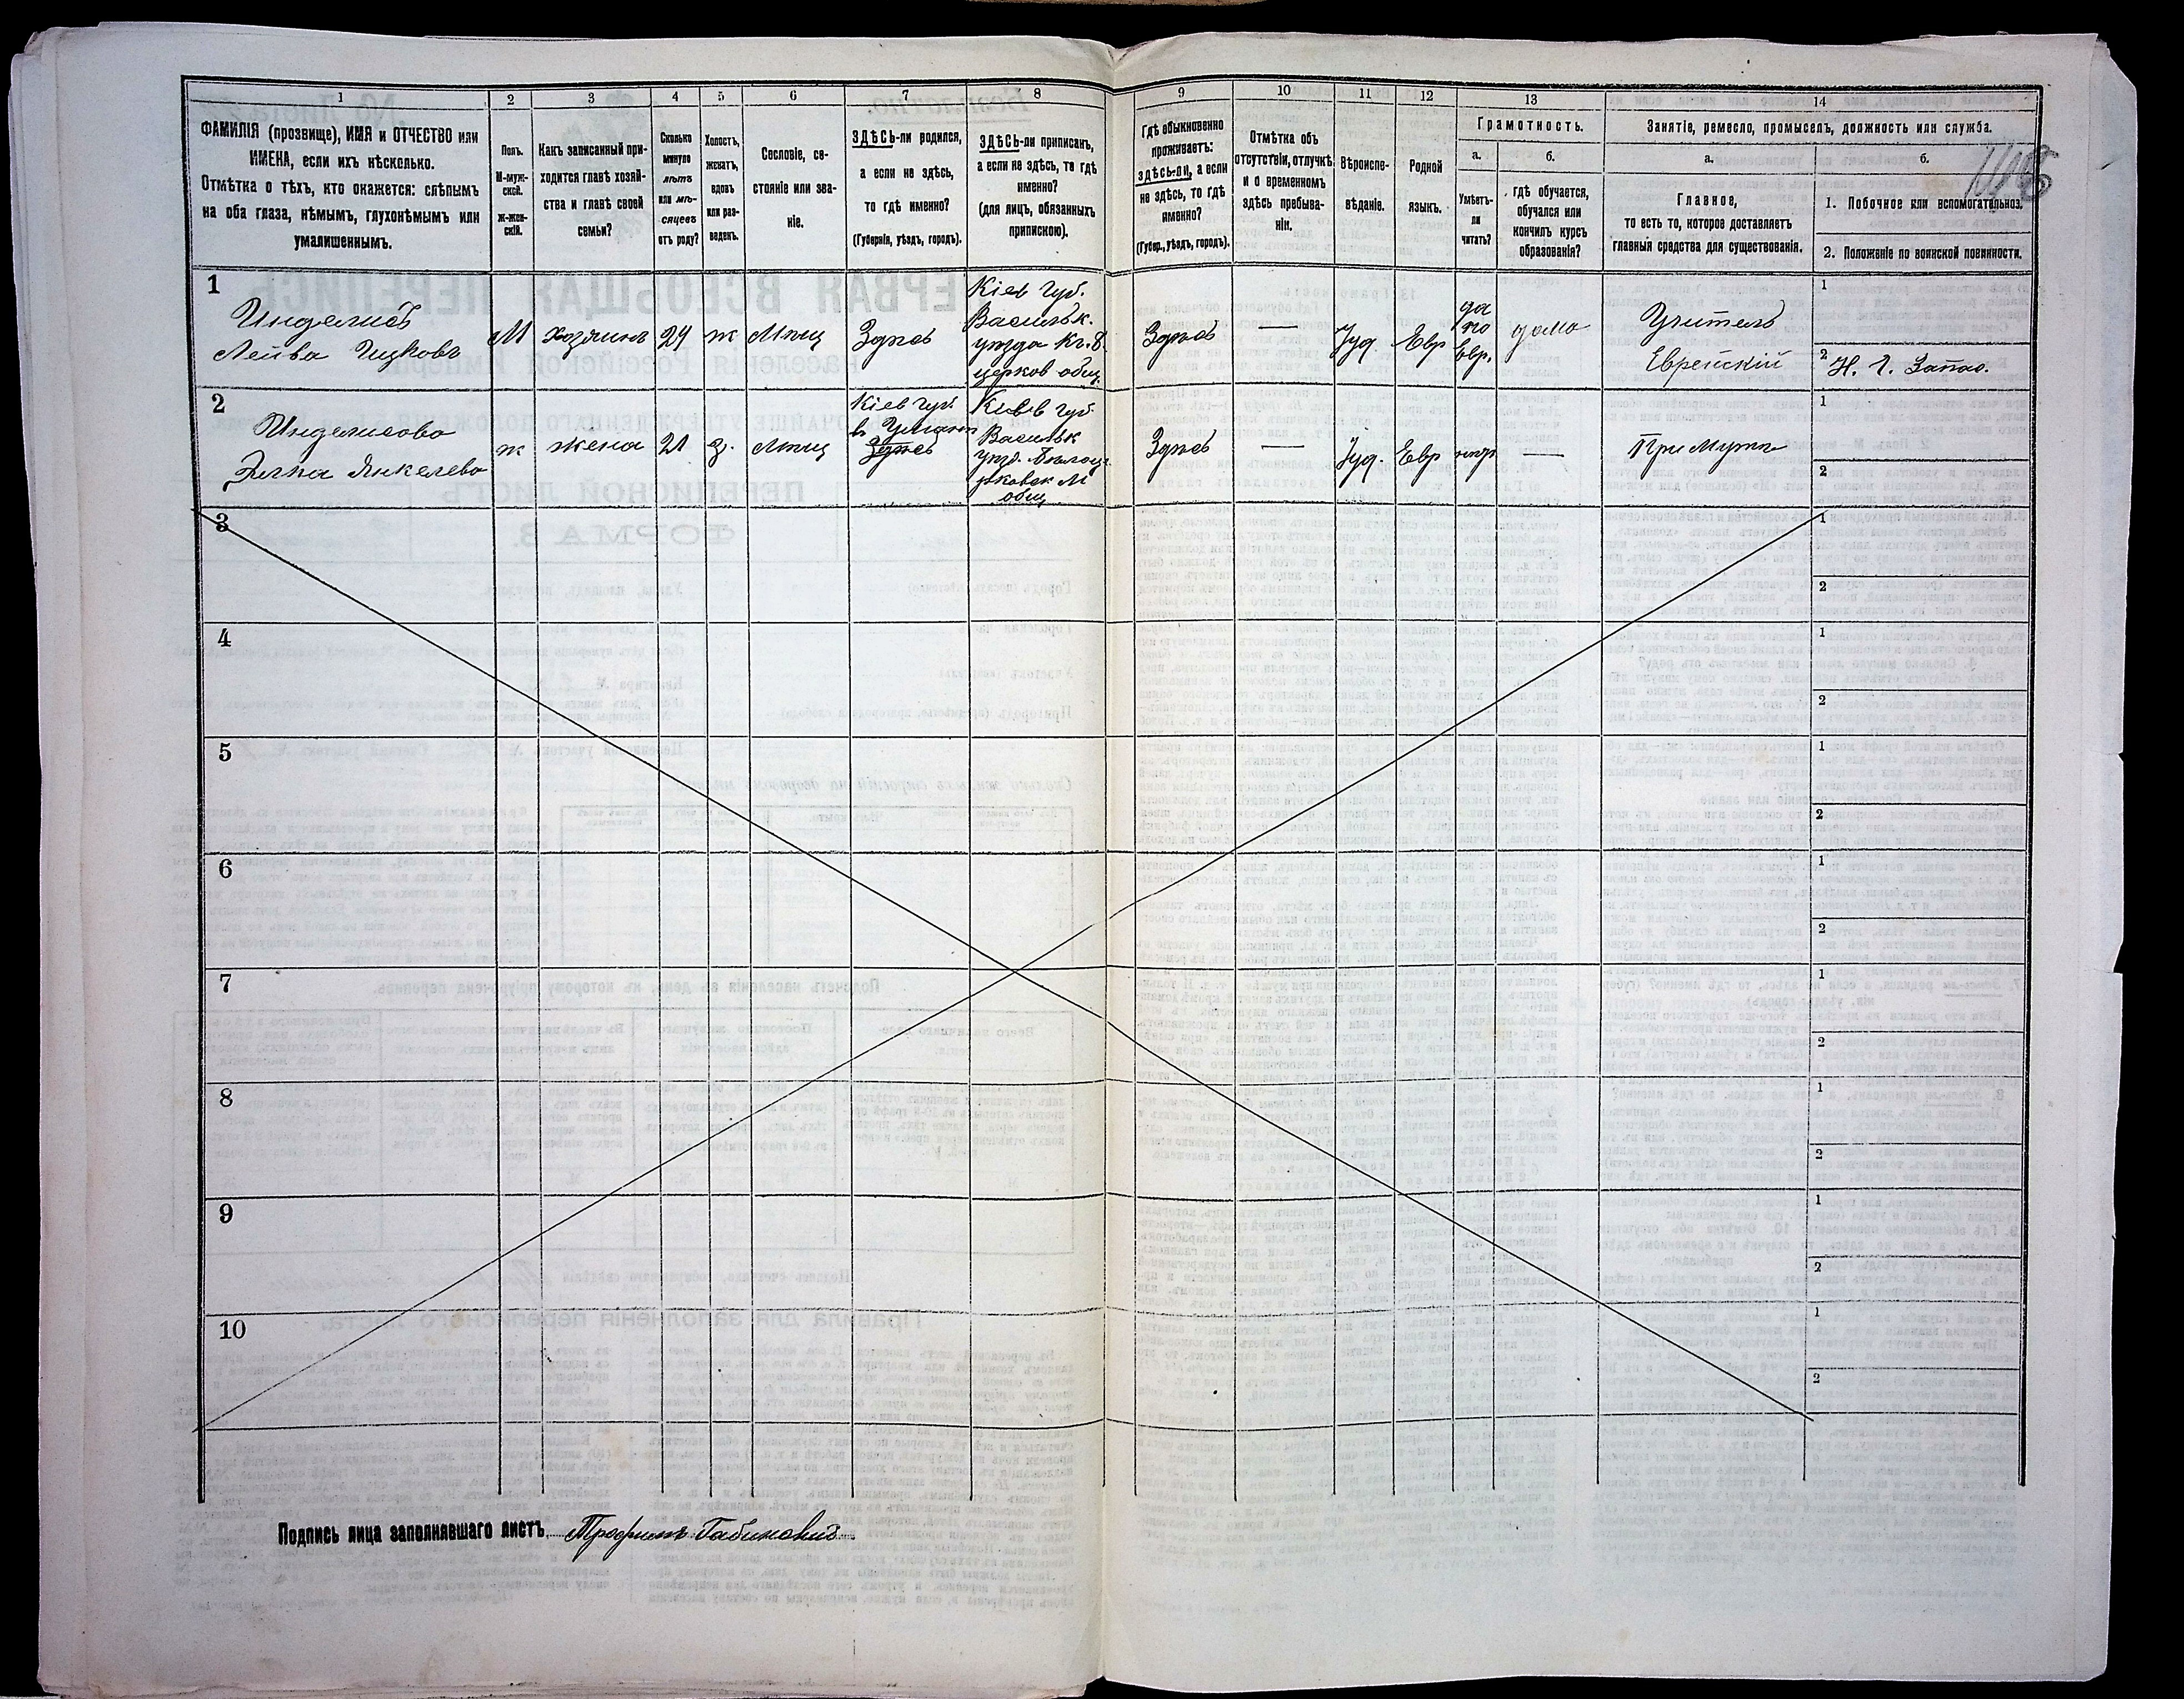 1 2 3 4 5 6 7 8 9 10 11 12 13 14
ФАМИЛІЯ (прозвище), ИМЯ и ОТЧЕСТВО или
ИМЕНА, если ихъ нѣсколько.
Отмѣтка о тѣхъ, кто окажется: слѣпымъ
на оба глаза, нѣмымъ, глухонѣмымъ или
умалишеннымъ.
Полъ.
М-муж-
ской.
Ж-жен-
скій.
Какъ записанный при-
ходится главѣ хозяй-
ства и главѣ своей
семьи?
Сколько
минуло
лѣтъ
или мѣ-
сяцевъ
отъ роду?
Холостъ,
женатъ,
вдовъ
или раз-
веденъ.
Сословіе, со-
стояніе или зва-
ніе.
ЗДѢСЬ-ли родился,
а если не здѣсь,
то гдѣ именно?
(Губернія, уѣздъ, городъ).
ЗДѢСЬ-ли приписанъ,
а если не здѣсь, то гдѣ
именно?
(для лицъ, обязанныхъ
припискою).
Гдѣ обыкновенно
проживаетъ:
здѣсь-ли, а если
не здѣсь, то гдѣ
именно?
(Губер., уѣздъ, городъ).
Отмѣтка объ
отсутствіи, отлучкѣ
и о временномъ
здѣсь пребыва-
ніи.
Вѣроиспо-
вѣданіе.
Родной
языкъ.
Грамотность.
а.
Умѣетъ-
ли
читать?
б.
гдѣ обучается,
обучался или
кончилъ курсъ
образованія?
Занятіе, ремесло, промыселъ, должность или служба.
а.
Главное,
то есть то, которое доставляетъ
главныя средства для существованія.
б.
1. Побочное или вспомогательное.
2. Положеніе по воинской повинности.
1
Инделисъ
Лейва Ицковъ
М
хозяинъ
29
ж
Мѣщ
Здѣсь
Кіев Губ.
Васильк.
уѣзда
церков общ.
Здѣсь
—
Іуд.
Евр
да
по
Евр.
дома
Учитель
Еврейскій
1
2
2
Инделисова
Элка Янкелева
ж
жена
21
з.
Мѣщ
Кіев Губ.
Здѣсь
Кіев Губ.
Васильк
общ
Здѣсь
—
Іуд.
Евр
—
При Мужѣ
1
2
3
1
2
4
1
2
5
1
2
6
1
2
7
1
2
8
1
2
9
1
2
10
1
2
Подпись лица заполнявшаго листъ Трофимъ Габинскій